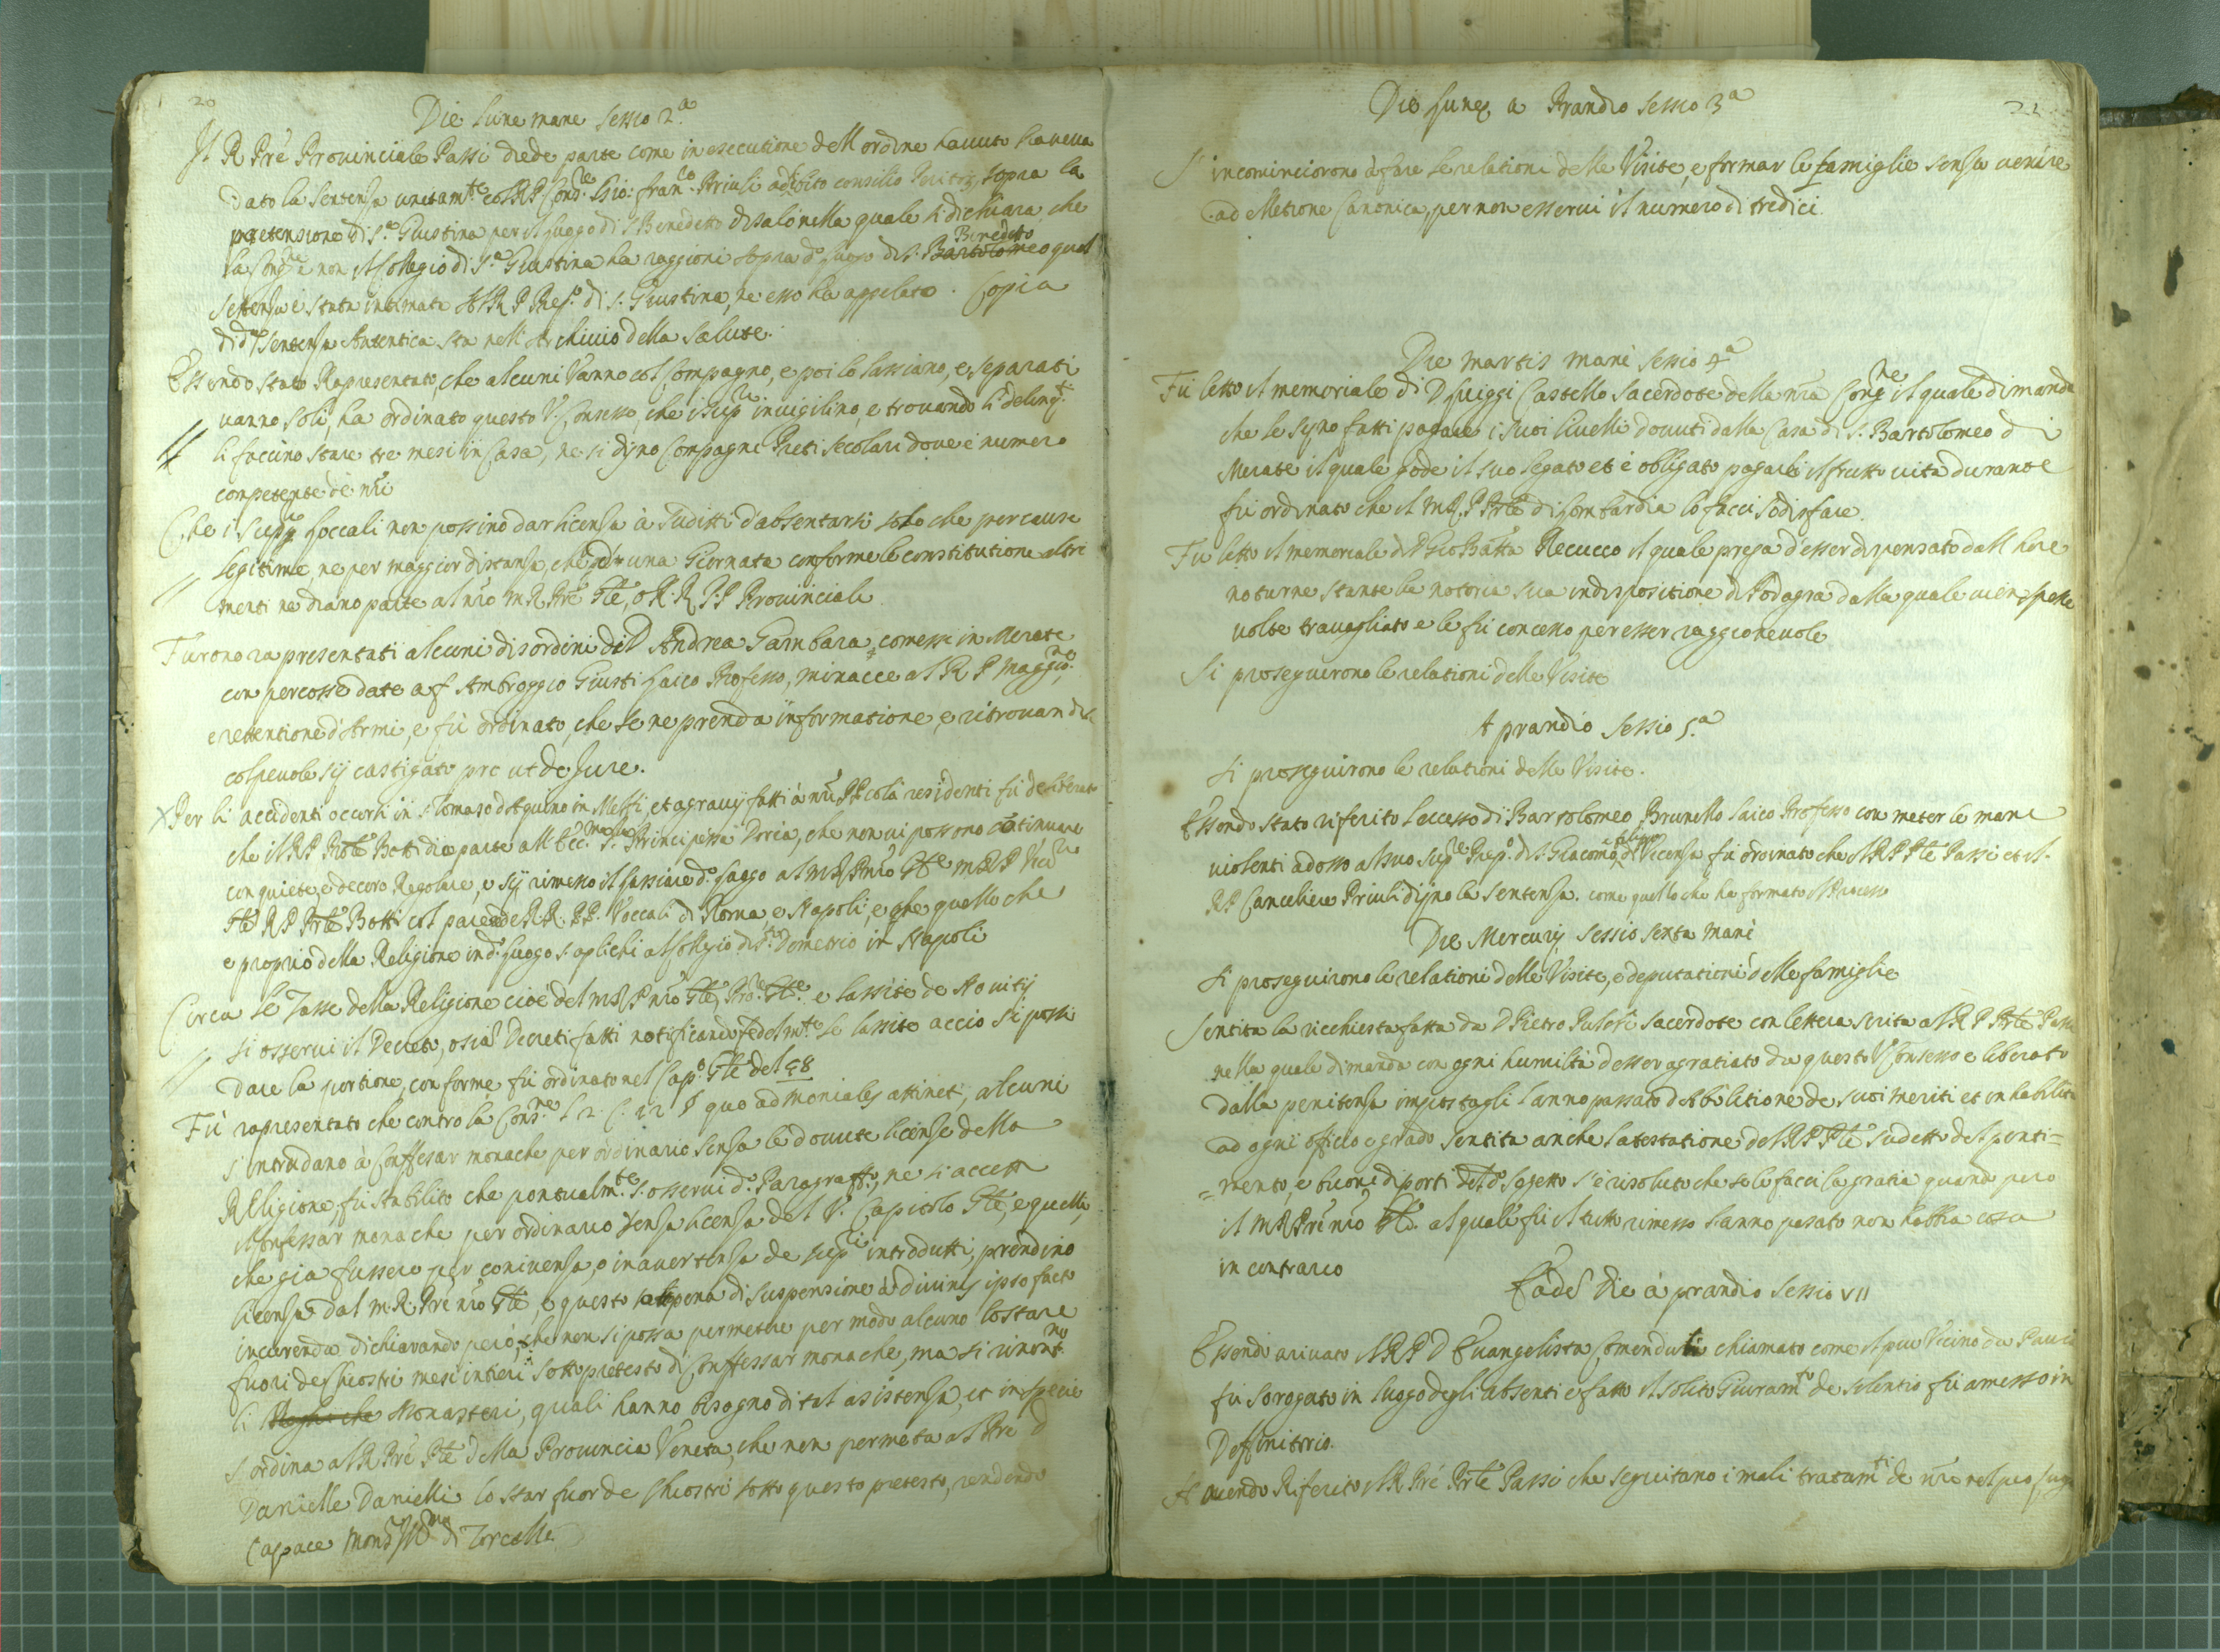 20
Die Lune mane sessio 2.a
Il R Pre Provinciale Passi diede parte come in esecutione dell ordine havuto haveva
dato la sentenza unitam.te col R P Cons.re Gio: Fran.co Priuli adibito consilio Periti, sopra la
pretensione di S.a Giustina per il luogo di S Benedetto di salò nella quale si dichiara che
la Cong.ne e non il Collegio di S.a Giustina ha raggioni sopra d.o luogo di S. Bartolomeo Benedetto qual
sentenza è stata intimata al R P Prep.o di S. Giustina, ne esso ha appelato. Copia
di d.a sentenza Autentica sta nell Archivio della Salute.
Essendo stato Rapresentato, che alcuni vanno col Compagno, e poi lo lassiano, e separati
vanno soli, ha ordinato questo V. Consesso, che i Sup.ri invigilino, e trovando li delinq.ti
li faccino stare tre mesi in Casa, ne si dijno Compagni Preti secolari dove è numero
competente de nri
Che i Sup.ri Loccali non possino dar licenza à sudditi d'absentarsi solo che per cause
legitime, ne per maggior distanza, che d'una Giornata conforme le constitutione altri
menti ne diano parte al nro M R Pre Gle, o R. R P. P Provinciali
Furono rapresentati alcuni disordini di D Andrea Gambara comessi in Merate
con percosse date a f Ambroggio Giusti Laico Professo, minacce al R P Maggio.ne,
e retentione d'Armi, e fù ordinato, che se ne prenda informatione, e ritrovandosi
colpevole sij castigato pro ut de Jure.
X Per li accidenti occorsi in S. Tomaso d'Aquino in Melfi, et agravij fatti à nri PP colà residenti fù deliberato
che il R P Prle Botti dia parte all Ecc.ma Sig.ra Principessa Doria, che non vi possono continuare
con quiete, e decoro Regolare, e sij rimesso il lassiare d.o luogo al M R P nro Gle M R P Vic.o
Gle R P Prle Botti col parere de R R. PP. Voccali di Roma, e Napoli, e che quello che
e proprio della Religione in d.o luogo s'aplichi al Collegio di S. Demetrio in Napoli
Circa le Tasse della Religione cioè del M R P nro Gle, Pro.re Gle. e lassite de Novitij
si osservi il Decreto, o sia Decreti fatti notificando fedelm.te le lassite acciò si possi
dare la portione, conforme fù ordinato nel Cap.o Gle del 58
Fù rapresentato che contro la Cons.ne L 2. C. 22 § quo ad moniales attinet, alcuni
s'intrudano à Confessar monache per ordinario senza le dovute licenze della
Religione, fù stabilito che pontualm.te s'osservi d.o Paragraffo, ne si accetti
il Confessar monache per ordinario senza licenza del V. Capitolo Gle, e quelli,
che gia fussero per conivenza, o inavertenza de sup.ri introdutti, prendino
licenza dal M. R Pre nro Gle, e questo sotto pena di suspensione à divinis ipso facto
incurenda dichiarando però, che non si possa permettere per modo alcuno lo stare
fuori de Chiostri mesi intieri sotto pretesto di Confessar monache, ma si
li Monasteri, quali hanno bisogno di tal asistenza, et in specie
s'ordina al R Pre Ple della Provincia Veneta, che non permetta al Pre D
Danielle Danielli lo star fuor de Chiostri sotto questo pretesto, rendendo
capace Mons.r di Torcello
21
Die Lunę a Prandio sessio 3.a
S incominciorono à fare le relationi delle Visite, e formar le famiglie senza venire
ad elletione Canonica, per non esservi il numero di tredici.
Die martis manè sessio 4.a
Fù letto il memoriale di D Luiggi Castello Sacerdote della nra Cong.ne il quale dimanda
che le sijno fatti pagare i suoi livelli dovuti dalla Casa di S. Bartolomeo di
Merate il quale gode il suo legato et è obligato pagarli il frutto vita durante
fù ordinato che il M R. P Prle di Lombardia lo facci sodisfare.
Fù letto il memoriale di D Gio Batta Recucco il quale prega d'esser dispensato dall hore
noturne stante la notoria sua indispositione di Podagra dalla quale vien spesse
volte travagliato e le fù concesso per esser raggionevole
Si proseguirono le relationi delle Visite
A prandio sessio 5.a
Si proseguirono le relationi delle Visite.
Essendo stato riferito l'eccesso di Bartolomeo Brunello laico Professo con meter le mani
violenti adosso al suo Sup.re Prep.o di S. Giacomo di Vicenza fù ordinato che il R P Ple Passi et il
R P Canceliere Priuli dijno la sentenza. come quello che ha formato il Processo
Die Mercurij sessio sexta manè
Si proseguirono le relationi delle Visite, e deputationi delle famiglie
Sentita la ricchiesta fatta da D Pietro Sacerdote con lettera scrita al R P Prle Passi
nella quale dimanda con ogni humiltà d'esser agratiato da questo V Consesso e liberato
dalla penitenza impostagli l'anno passato d'abolitione de suoi meriti et inhabilità
ad ogni officio e grado sentita anche l'atestatione del R P Ple sudetto del penti=
=mento, e buoni diporti del d.o sogetto s'è risoluto che se le facci la gratia quando però
il M R Pre nro Gle. al quale fù il tutto rimesso l'anno pasato non habbia cosa
in contrario
Eadē die à prandio sessio VII
Essendo arivato il R P D Evangelista Comenduli chiamato come il piu Vicino da Pavia
fù sorogato in luogo degli absenti e fatto il solito Giuram.to de silentio fù amesso in
Deffinitorio.
Havendo Riferito il R Pre Prle Passi che seguitano i mali tratam.ti de nri nel pio